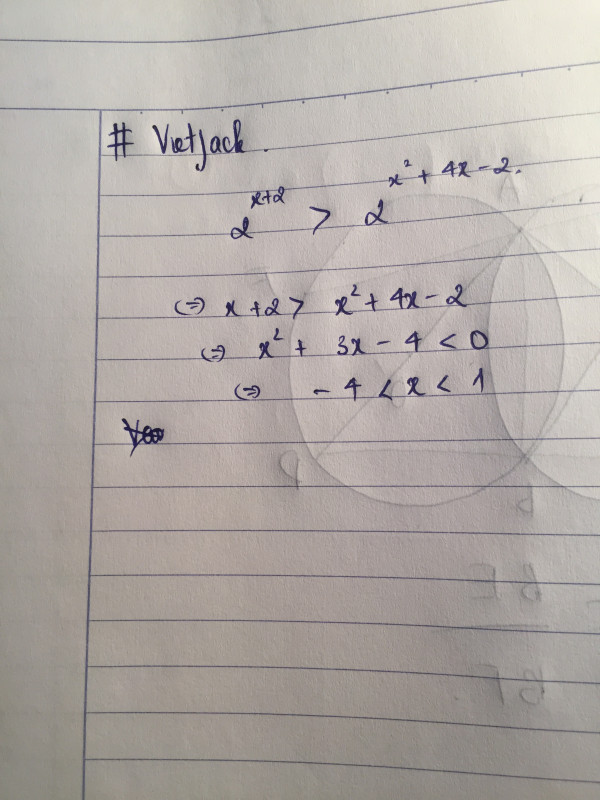 # VietJack.
2^{x+2} > 2^{x²+4x-2}.
(=) x+2 > x²+4x-2
(=) x²+ 3x-4 < 0
(=) -4 < x < 1